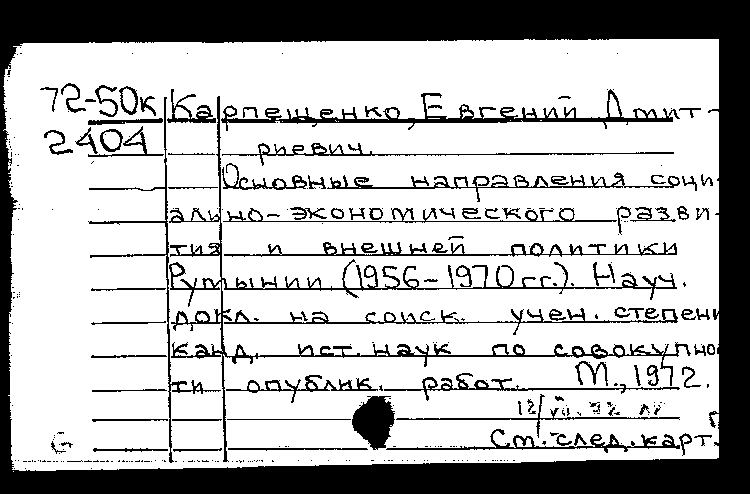 72-50к Карпещенко, Евгений Дмит-
2404 риевич.
Основные направления соци-
ально-экономического разви-
тия и внешней политики
Румынии (1956-1970 гг.). Науч.
докл. на соиск. учен. степени
канд. ист. наук по совокупно
ти опублик. работ. М., 1972.
G См. след. карт.